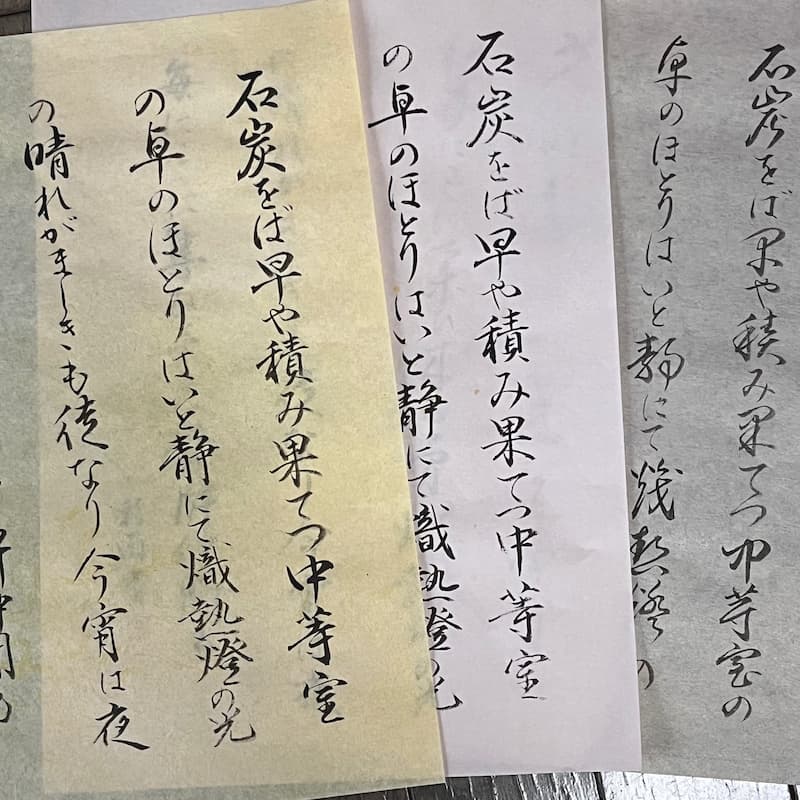 石炭をば早や積み果てつ中等室の
卓のほとりはいと静にて熾熱燈の
石炭をば早や積み果てつ中等室
の卓のほとりはいと静にて熾熱燈の光
石炭をば早や積み果てつ中等室
の卓のほとりはいと静にて熾熱燈の光
の晴れがましきも徒なり今宵は夜